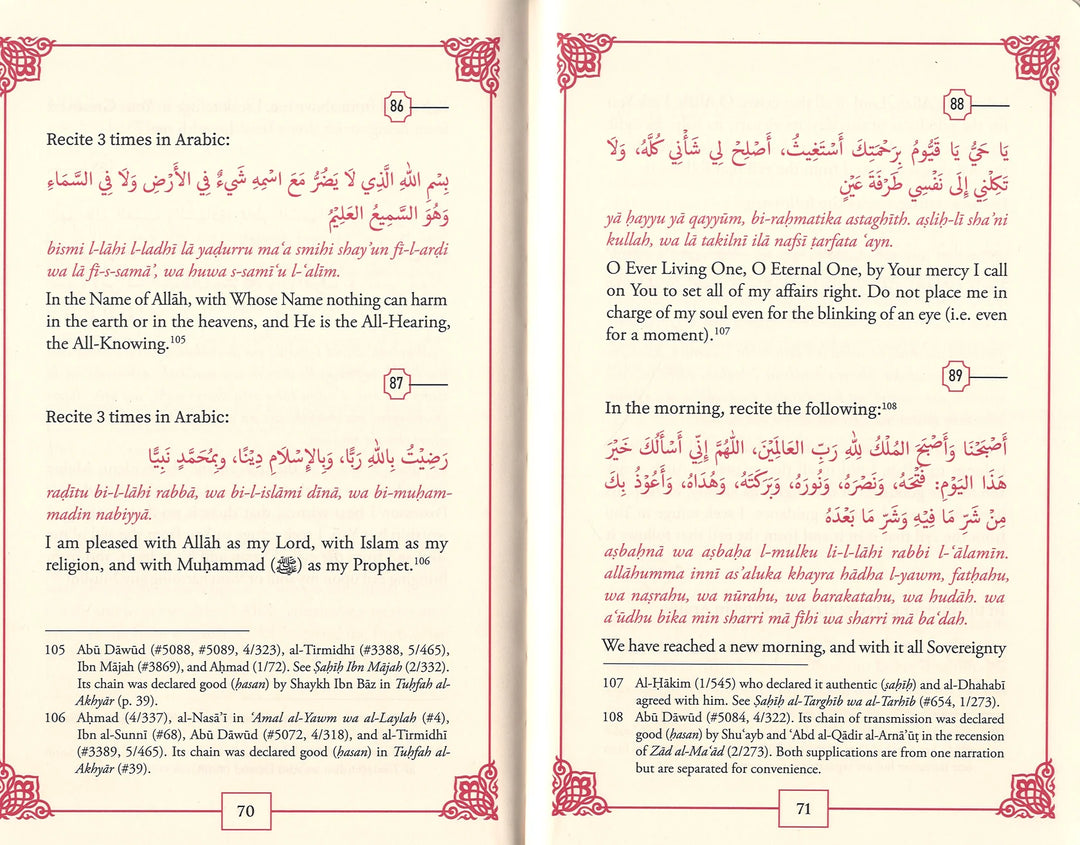 86
Recite 3 times in Arabic:
بِسْمِ اللهِ الَّذِي لَا يَضُرُّ مَعَ اسْمِهِ شَيْءٌ فِي الأَرْضِ وَلَا فِي السَّمَاءِ
وَهُوَ السَّمِيعُ العَلِيْمُ
bismi l-lāhi l-ladhī lā yaḍurru ma‘a smihi shay’un fī-l-arḍi
wa lā fī-s-samā’, wa huwa s-samī‘u l-‘alīm.
In the Name of Allāh, with Whose Name nothing can harm
in the earth or in the heavens, and He is the All-Hearing,
the All-Knowing.105
87
Recite 3 times in Arabic:
رَضِيْتُ بِاللهِ رَبًّا، وَبِالإِسْلَامِ دِيْنًا، وبِمُحَمَّدٍ نَبِيًّا
raḍītu bi-l-lāhi rabbā, wa bi-l-islāmi dīnā, wa bi-muḥam-
madin nabiyyā.
I am pleased with Allāh as my Lord, with Islam as my
religion, and with Muḥammad (ﷺ) as my Prophet.106
105 Abū Dāwūd (#5088, #5089, 4/323), al-Tirmidhī (#3388, 5/465),
Ibn Mājah (#3869), and Aḥmad (1/72). See Ṣaḥīḥ Ibn Mājah (2/332).
Its chain was declared good (ḥasan) by Shaykh Ibn Bāz in Tuḥfah al-
Akhyār (p. 39).
106 Aḥmad (4/337), al-Nasā’ī in ‘Amal al-Yawm wa al-Laylah (#4),
Ibn al-Sunnī (#68), Abū Dāwūd (#5072, 4/318), and al-Tirmidhī
(#3389, 5/465). Its chain was declared good (ḥasan) in Tuḥfah al-
Akhyār (#39).
70
88
يَا حَيُّ يَا قَيُّومُ بِرَحْمَتِكَ أَسْتَغِيثُ، أَصْلِحْ لِي شَأْنِي كُلَّهُ، وَلَا
تَكِلْنِي إِلَى نَفْسِي طَرْفَةَ عَيْنٍ
yā ḥayyu yā qayyūm, bi-raḥmatika astaghīth. aṣliḥ-lī sha’nī
kullah, wa lā takilnī ilā nafsī ṭarfata ‘ayn.
O Ever Living One, O Eternal One, by Your mercy I call
on You to set all of my affairs right. Do not place me in
charge of my soul even for the blinking of an eye (i.e. even
for a moment).107
89
In the morning, recite the following:108
أَصْبَحْنَا وَأَصْبَحَ المُلْكُ لِلهِ رَبِّ العَالَمِيْنَ، اللَّهُمَّ إِنِّي أَسْأَلُكَ خَيْرَ
هَذَا اليَوْمِ: فَتْحَهُ، وَنَصْرَهُ، وَنُورَهُ، وَبَرَكَتَهُ، وَهُدَاهُ، وَأَعُوْذُ بِكَ
مِنْ شَرِّ مَا فِيْهِ وَشَرِّ مَا بَعْدَهُ
aṣbaḥnā wa aṣbaḥa l-mulku li-l-lāhi rabbi l-‘ālamīn.
allāhumma innī as’aluka khayra hādha l-yawm, fatḥahu,
wa naṣrahu, wa nūrahu, wa barakatahu, wa hudāh. wa
a‘ūdhu bika min sharri mā fīhi wa sharri mā ba‘dah.
We have reached a new morning, and with it all Sovereignty
107 Al-Ḥākim (1/545) who declared it authentic (ṣaḥīḥ) and al-Dhahabī
agreed with him. See Ṣaḥīḥ al-Targhīb wa al-Tarhīb (#654, 1/273).
108 Abū Dāwūd (#5084, 4/322). Its chain of transmission was declared
good (ḥasan) by Shu‘ayb and ‘Abd al-Qādir al-Arnā’ūṭ in the recension
of Zād al-Ma‘ād (2/273). Both supplications are from one narration
but are separated for convenience.
71